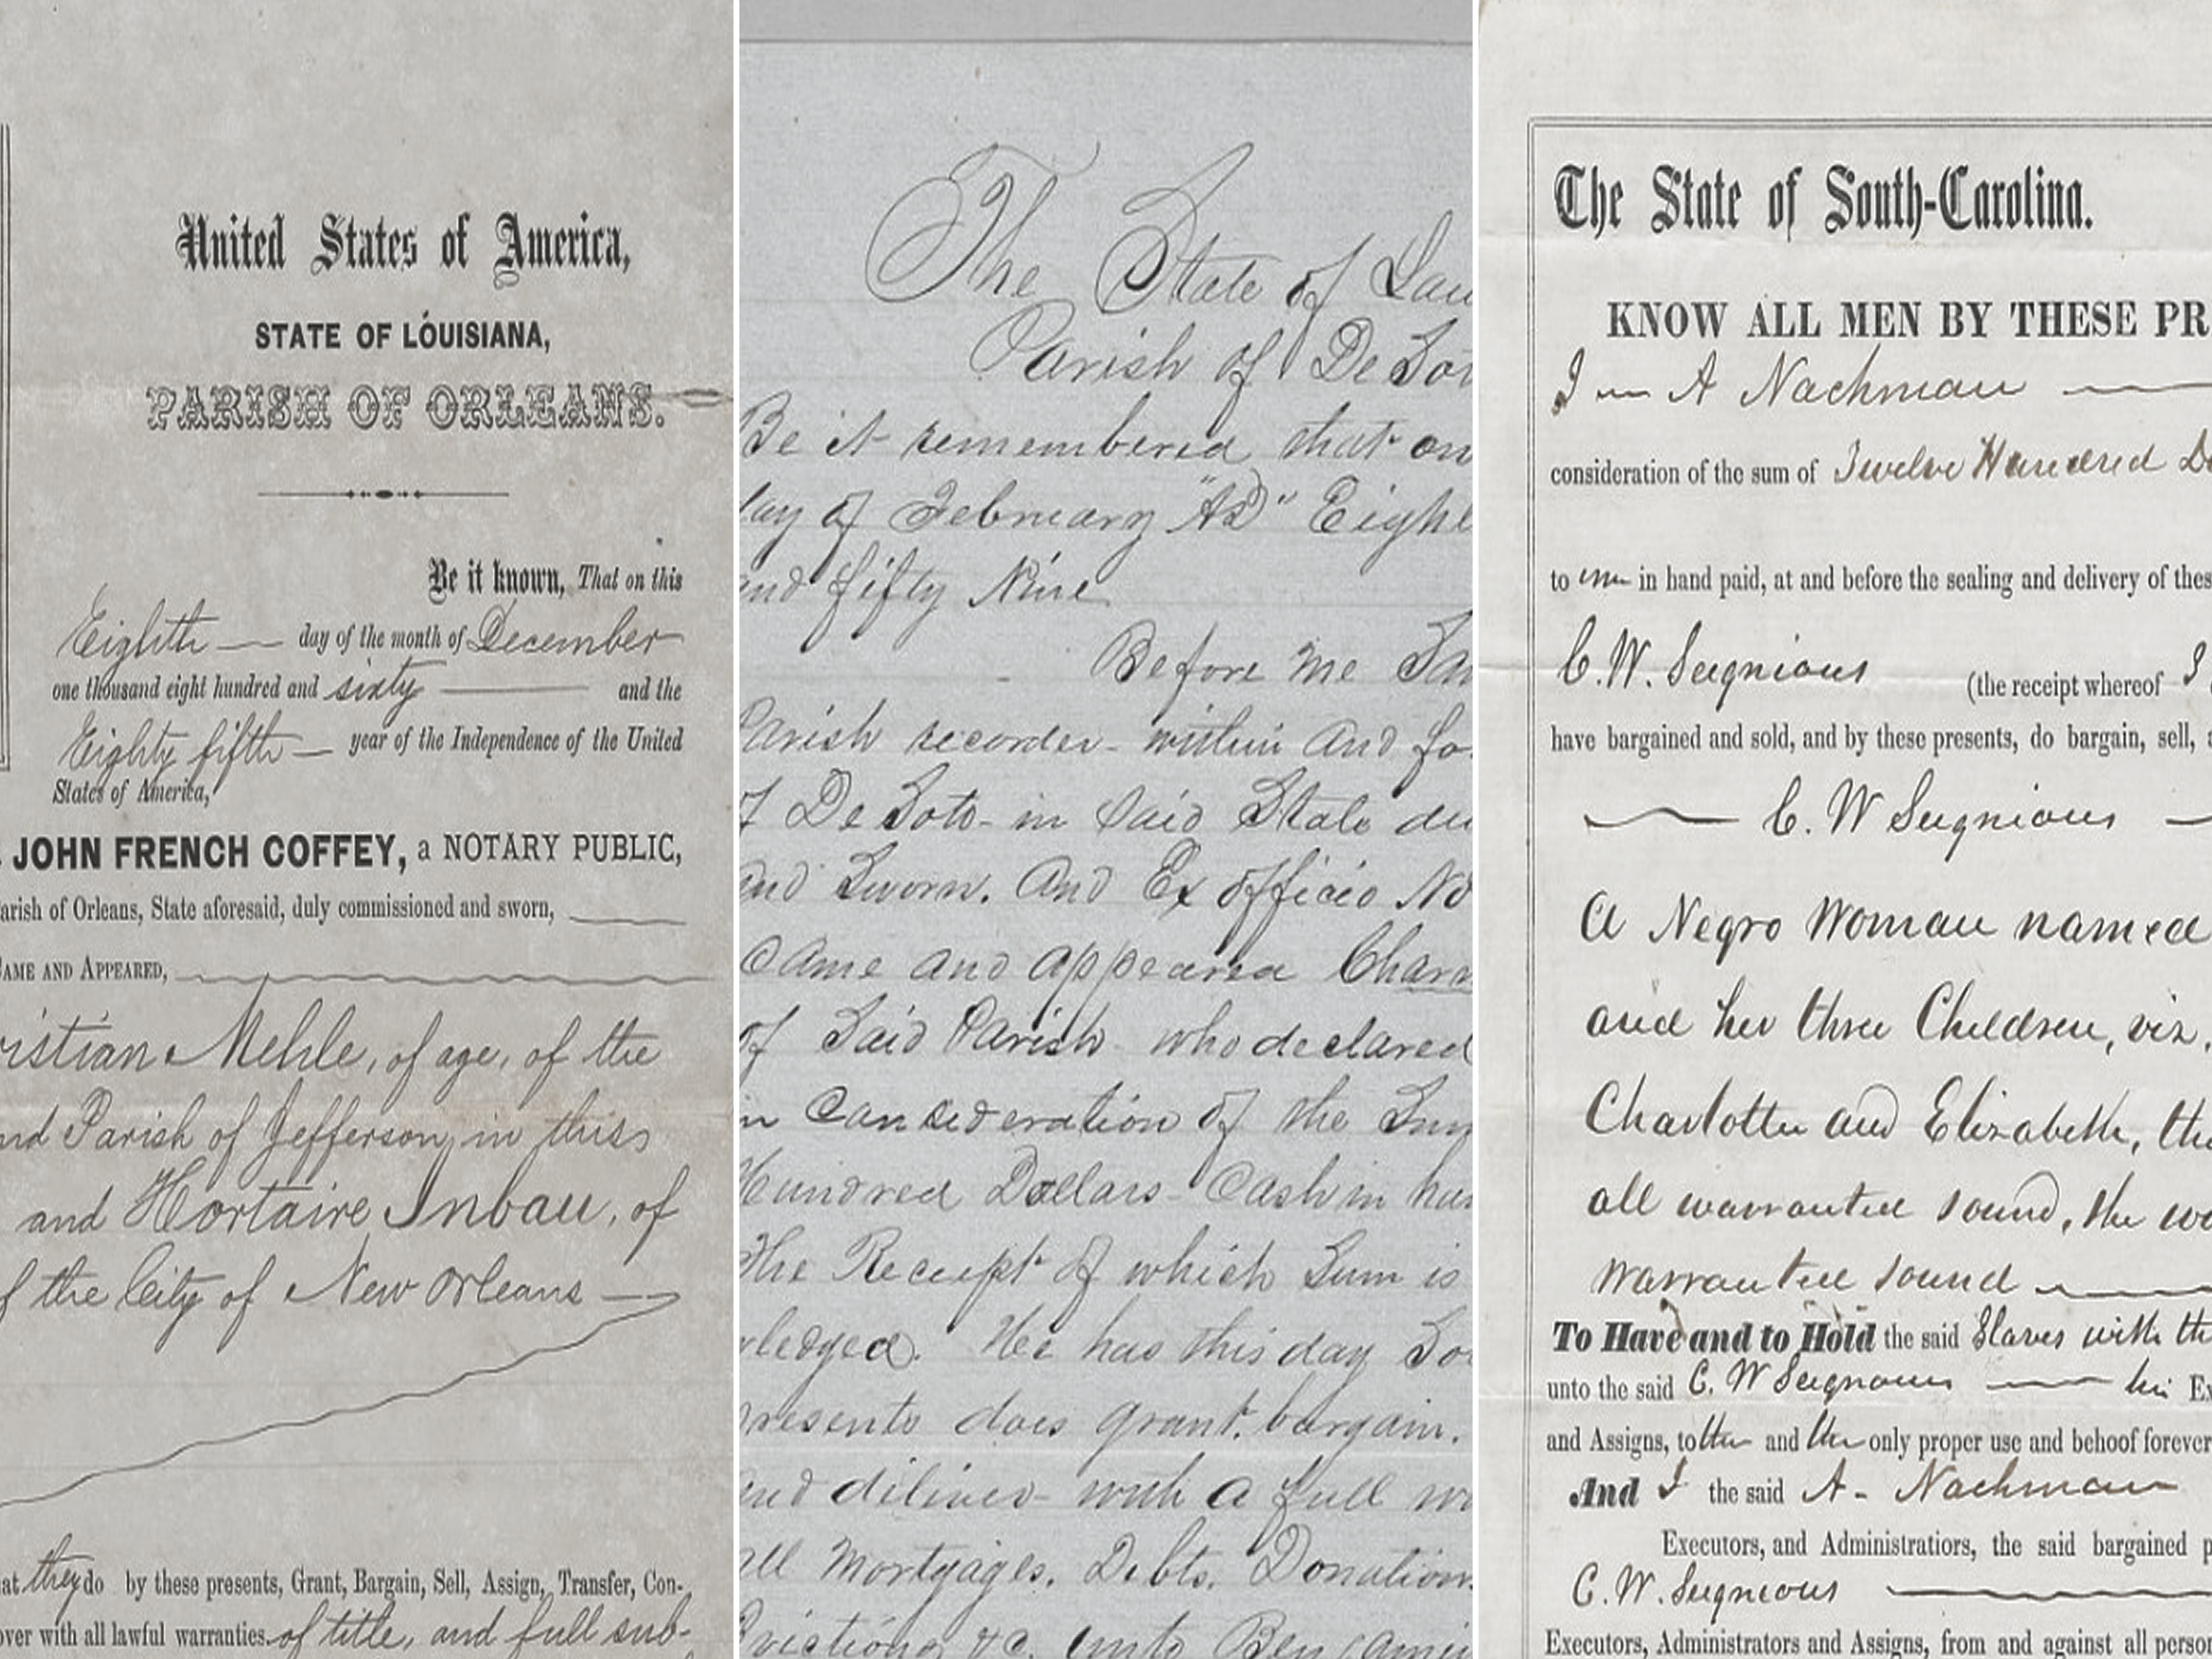 United States of America,
STATE OF LOUISIANA,
PARISH OF ORLEANS.
Be it known, That on this
Eighth day of the month of December
one thousand eight hundred and sixty and the
Eighty fifth year of the Independence of the United
States of America,
JOHN FRENCH COFFEY, a NOTARY PUBLIC,
arish of Orleans, State aforesaid, duly commissioned and sworn,
AME AND APPEARED,
ristian Mehle, of age, of the
nd Parish of Jefferson, in this
and Hortaire Inbau, of
f the City of New Orleans
at they do by these presents, Grant, Bargain, Sell, Assign, Transfer, Con-
over with all lawful warranties of title, and full sub-
The State of Lou
Parish of De Sot
Be it remembered that on
day of February "AD" Eight
and fifty Nine
Before me Sa
Parish recorder within and fo
of De Soto in Said State du
and Sworn. And Ex officio No
Came and appeared Char
of Said Parish who declared
in Consideration of the Sum
Hundred Dollars Cash in han
the Receipt of which Sum is
wledged. He has this day So
presents does grant, bargain.
and diliver with a full
all Mortgages. Debts. Donation
Evictions &c. unto Benjamin
The State of South-Carolina.
KNOW ALL MEN BY THESE PR
I A Nachman
consideration of the sum of Twelve Hundred Do
to me in hand paid, at and before the sealing and delivery of thes
C. W. Seignious (the receipt whereof I
have bargained and sold, and by these presents, do bargain, sell, a
C. W Seignious
A Negro Woman named
and her three Children, viz.
Charlotte and Elizabeth, the
all warranted sound, the wo
warranted sound
To Have and to Hold the said Slaves with th
unto the said C. W Seignious his Ex
and Assigns, to their and their only proper use and behoof forever
And I the said A. Nachman
Executors, and Administratiors, the said bargained p
C. W. Seignious
Executors, Administrators and Assigns, from and against all person